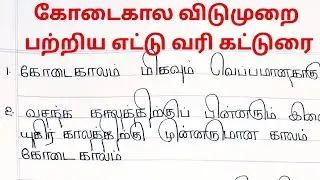 கோடைகால விடுமுறை
பற்றிய எட்டு வரி கட்டுரை
1. கோடைகாலம் மிகவும் வெப்பமானதாகும்
2. வசந்த காலத்திற்குப் பின்னரும் இலை
யுதிர் காலத்திற்கு முன்னருமான காலம்
கோடை காலம்